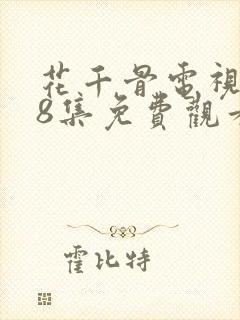 花千骨電視
8集免費觀看
霍比特